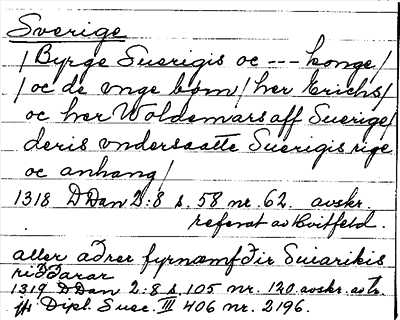 Sverige
/ Byrge Suerigis oc --- konge /
/ oc de vnge børn / her Erichs /
oc her Woldemars aff Suerige /
deris vndersaatte Suerigis rige
oc anhang /
1318 DDan 2:8 s. 58 nr. 62. avskr.
referat av Hvitfeld.
aller aðrer fyrnæmfðir Suiarikis
riððarar
1319 DDan 2:8 s. 105 nr. 120 avskr. av tr.
jfr Dipl. Suec. III 406 nr. 2196.